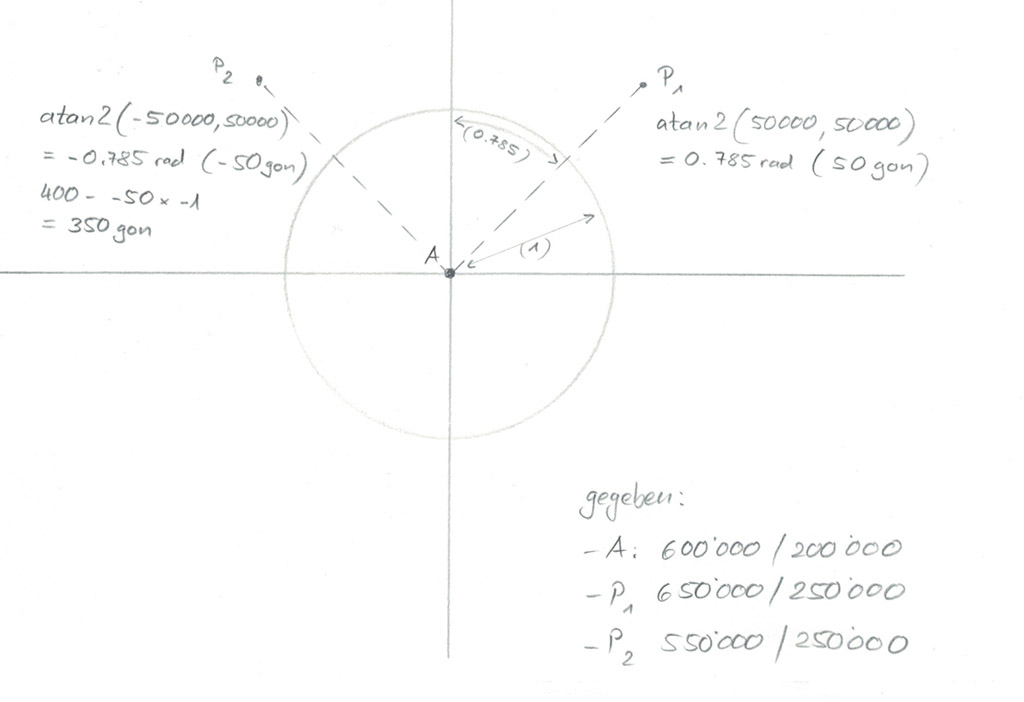 P2
atan2(-50000,50000)
= -0.785 rad (-50gon)
400 - -50 × -1
= 350 gon
P1
atan2(50000,50000)
= 0.785 rad (50gon)
(0.785)
A
(1)
gegeben:
- A: 600'000 / 200'000
- P1 650'000 / 250'000
- P2 550'000 / 250'000